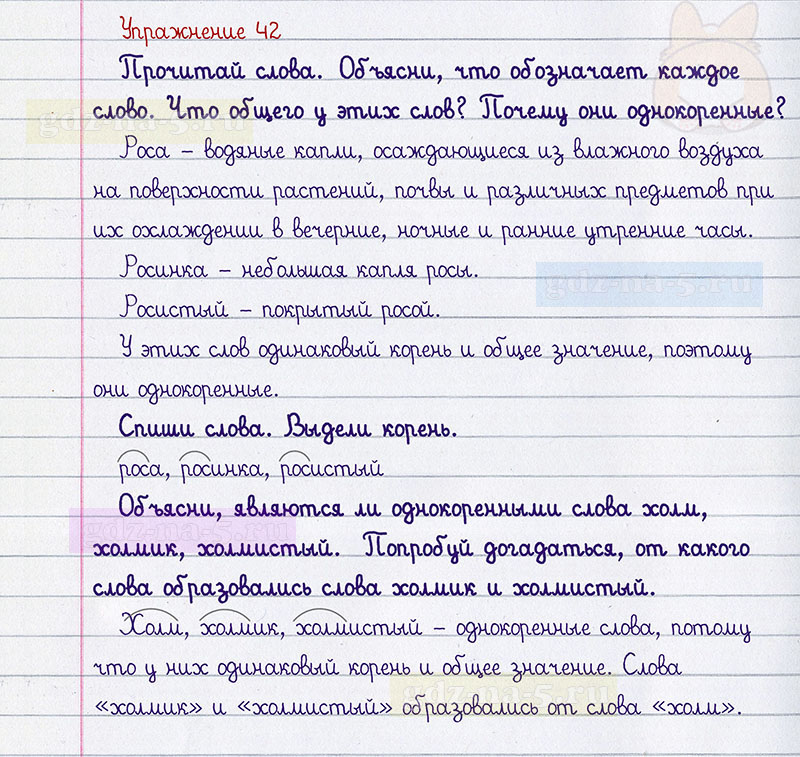 Упражнение 42
Прочитай слова. Объясни, что обозначает каждое
слово. Что общего у этих слов? Почему они однокоренные?
gdz-na-5.ru
Роса – водяные капли, осаждающиеся из влажного воздуха
на поверхности растений, почвы и различных предметов при
их охлаждении в вечерние, ночные и ранние утренние часы.
Росинка – небольшая капля росы.
gdz-na-5.ru
Росистый – покрытый росой.
У этих слов одинаковый корень и общее значение, поэтому
они однокоренные.
Спиши слова. Выдели корень.
роса, росинка, росистый
Объясни, являются ли однокоренными слова холм,
gdz-na-5.ru
холмик, холмистый. Попробуй догадаться, от какого
слова образовались слова холмик и холмистый.
Холм, холмик, холмистый – однокоренные слова, потому
что у них одинаковый корень и общее значение. Слова
gdz-na-5.ru
«холмик» и «холмистый» образовались от слова «холм».